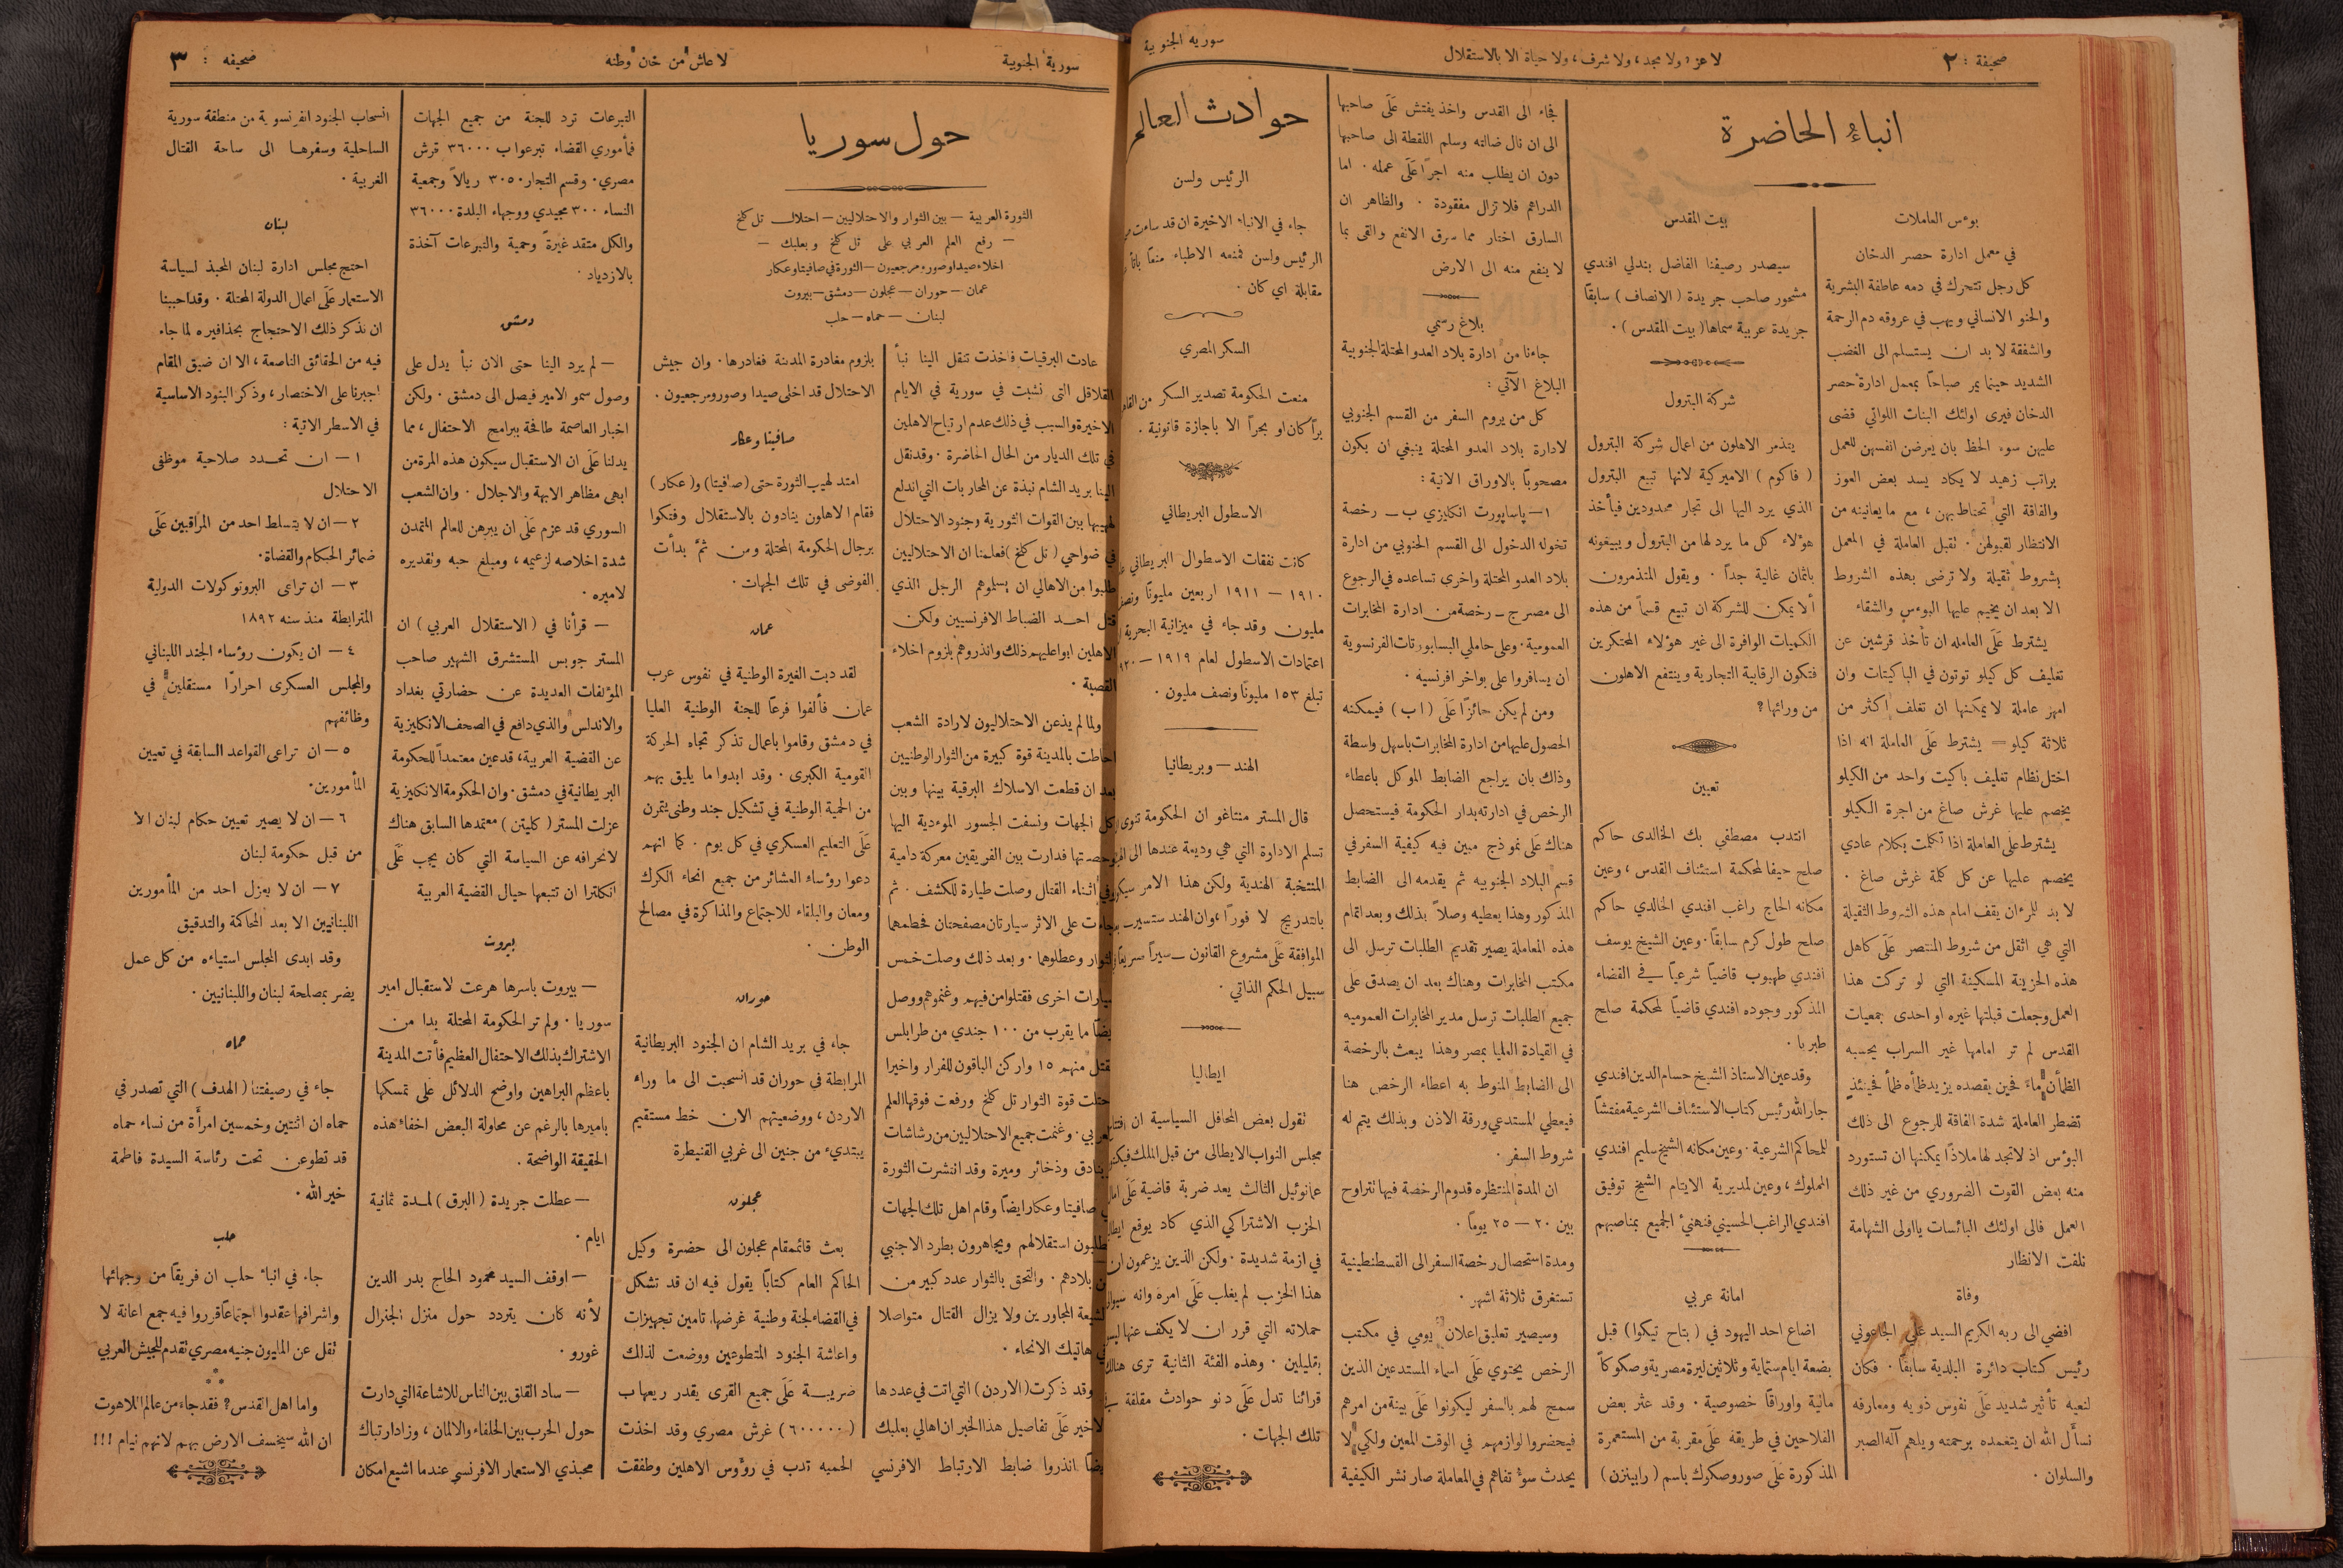 صحيفة : ٢
لا عز، ولا مجد، ولا شرف، ولا حياة الا بالاستقلال
سورية الجنوبية
انباء الحاضرة
بوءس العاملات
في معمل ادارة حصر الدخان
كل رجل تتحرك في دمه عاطفة البشرية
والحنو الانساني ويهب في عروقه دم الرحمة
والشفقة لا بد ان يستسلم الى الغضب
الشديد حينما يمر صباحاً بمعمل ادارة حصر
الدخان فيرى اولئك البنات اللواتي قضى
عليهن سوء الحظ بان يعرضن انفسهن للعمل
براتب زهيد لا يكاد يسد بعض العوز
والفاقة التي تحتاط بهن، مع ما يعانينه من
الانتظار لقبولهن . تقبل العاملة في المعمل
بشروط ثقيلة ولا ترضى بهذه الشروط
الا بعد ان يخيم عليها البوءس والشقاء
يشترط عَلَى العامله ان تأخذ قرشين عن
تغليف كل كيلو توتون في الباكيتات وان
امهر عاملة لا يمكنها ان تغلف اكثر من
ثلاثة كيلو = يشترط عَلَى العاملة انه اذا
اختل نظام تغليف باكيت واحد من الكيلو
يخصم عليها غرش صاغ من اجرة الكيلو
يشترط عَلَى العاملة اذا تكلمت بكلام عادي
يخصم عليها عن كل كلمة غرش صاغ .
لا بد للمرء ان يقف امام هذه الشروط الثقيلة
التي هي اثقل من شروط المنتصر عَلَى كاهل
هذه الحزينة المسكينة التي لو تركت هذا
العمل وجعلت قبلتها غيره او احدى جمعيات
القدس لم تر امامها غير السراب يحسبه
الظمأن ماءً فحين بقصده يزيد ظأه ظمأ فحينئذٍ
تضطر العاملة شدة الفاقة للرجوع الى ذلك
البؤس اذ لا تجد لها ملاذاً يمكنها ان تستورد
منه بعض القوت الضروري من غير ذلك
العمل فالى اولئك البائسات يا اولى الشهامة
نلفت الانظار
وفاة
افضي الى ربه الكريم السيد علي الجاعوني
رئيس كتاب دائرة البلدية سابقاً . فكان
لنعيه تأثير شديد عَلَى نفوس ذويه ومعارفه
نسأَل الله ان يتغمده برحمته ويلهم آله الصبر
والسلوان .
بيت المقدس
سيصدر رصيفنا الفاضل بندلي افندي
مشحور صاحب جريدة ( الانصاف ) سابقاً
جريدة عربية سماها ( بيت المقدس ) .
شركة البترول
يتذمر الاهلون من اعمال شركة البترول
( فاكوم ) الاميركية لانها تبيع البترول
الذي يرد اليها الى تجار محدودين فيأخذ
هؤلاء كل ما يرد لها من البترول ويبيعونه
باثمان غالية جداً . ويقول المتذمرون
ألا يمكن للشركة ان تبيع قسماً من هذه
الكميات الوافرة الى غير هؤلاء المحتكرين
فتكون الرقابية التجارية وينتفع الاهلون
من ورائها ؟
تعيين
انتدب مصطفى بك الخالدى حاكم
صلح حيفا لمحكمة استئناف القدس، وعين
مكانه الحاج راغب افندي الخالدي حاكم
صلح طول كرم سابقاً . وعين الشيخ يوسف
افندي طهبوب قاضياً شرعياً في القضاء
المذكور وجوده افندي قاضياً لمحكمة صلح
طبريا .
وقد عين الاستاذ الشيخ حسام الدين افندي
جارالله رئيس كتاب الاستئناف الشرعية مفتشاً
للمحاكم الشرعية . وعين مكانه الشيخ سليم افندي
المملوك، وعين لمديرية الايتام الشيخ توفيق
افندي الراغب الحسيني فنهنيء الجميع بمناصبهم
امانة عربي
اضاع احد اليهود في ( بتاح تيكوا ) قبل
بضعة ايام ستماية وثلاثين ليرة مصرية وصكوكاً
مالية واوراقاً خصوصية . وقد عثر بعض
الفلاحين في طريقه عَلَى مقربة من المستعمرة
المذكورة عَلَى صور وصكوك باسم ( رابينزن )
فجاء الى القدس واخذ يفتش عَلَى صاحبها
الى ان نال ضالته وسلم اللقطة الى صاحبها
دون ان يطلب منه اجراً عَلَى عمله . اما
الدراهم فلا تزال مفقودة . والظاهر ان
السارق اختار مما سرق الانفع والقى بما
لا ينفع منه الى الارض
بلاغ رسمي
جاءنا من ادارة بلاد العدو المحتلة الجنوبية
البلاغ الآتي :
كل من يروم السفر من القسم الجنوبي
لادارة بلاد العدو المحتلة ينبغي ان يكون
مصحوباً بالاوراق الاتية :
١ — پاساپورت انكليزي ب — رخصة
تخوله الدخول الى القسم الجنوبي من ادارة
بلاد العدو المحتلة واخرى تساعده في الرجوع
الى مصر ج — رخصة من ادارة المخابرات
العمومية . وعلى حاملي البسابورتات الفرنسوية
ان يسافروا على بواخر افرنسية .
ومن لم يكن حائزاً عَلَى ( ا ب ) فيمكنه
الحصول عليها من ادارة المخابرات باسهل واسطة
وذاك بان يراجع الضابط الموكل باعطاء
الرخص في ادارته بدار الحكومة فيستحصل
هناك عَلَى نموذج مبين فيه كيفية السفر في
قسم البلاد الجنوبيه ثم يقدمه الى الضابط
المذكور وهذا يعطيه وصلاً بذلك وبعد اتمام
هذه المعاملة يصير تقديم الطلبات ترسل الى
مكتب المخابرات وهناك بعد ان يصدق على
جميع الطلبات ترسل مدير المخابرات العموميه
في القيادة العليا بمصر وهذا يبعث بالرخصة
الى الضابط المنوط به اعطاء الرخص هنا
فيعطي المستدعي ورقة الاذن وبذلك يتم له
شروط السفر .
ان المدة المنتظره قدوم الرخصة فيها تتراوح
بين ٢٠ — ٢٥ يوماً .
ومدة استحصال رخصة السفر الى القسطنطينية
تستغرق ثلاثة اشهر .
وسيصير تعليق اعلان يومي في مكتب
الرخص يحتوي عَلَى اسماء المستدعين الذين
سمح لهم بالسفر ليكونوا عَلَى بينة من امرهم
فيحضروا لوازمهم في الوقت المعين ولكي لا
يحدث سوء تفاهم في المعاملة صار نشر الكيفية
حوادث العالم
الرئيس ولسن
جاء في الانباء الاخيرة ان قد ساءت
الرئيس ولسن فمنعه الاطباء منعاً باتاً
مقابلة اي كان .
السكر المصري
منعت الحكومة تصدير السكر من
براً كان او بحراً الا باجازة قانونية .
الاسطول البريطاني
كانت نفقات الاسطول البريطاني
١٩١٠ — ١٩١١ اربعين مليوناً ونصف
مليون وقد جاء في ميزانية البحرية
اعتمادات الاسطول لعام ١٩١٩ —
تبلغ ١٥٣ مليوناً ونصف مليون .
الهند — وبريطانيا
قال المستر منتاغو ان الحكومة تنوى
تسلم الادارة التي هي وديعة عندها الى
المنتخبة الهندية ولكن هذا الامر
بالتدريج لا فوراً، وان الهند ستسير
الموافقة عَلَى مشروع القانون — سيراً سريعاً
سبيل الحكم الذاتي .
ايطاليا
تقول بعض المحافل السياسية ان
مجلس النواب الايطالى من قبل الملك
عمانوئيل الثالث يعد ضربة قاضية عَلَى
الحزب الاشتراكي الذي كاد يوقع
في ازمة شديدة . ولكن الذين يزعمون ان
هذا الحزب لم يغلب عَلَى امره وانه
حملاته التي قرر ان لا يكف عنها
بقليلين . وهذه الفئة الثانية ترى هنالك
قرائنا تدل عَلَى دنو حوادث مقلقة
تلك الجهات .
سورية الجنوبية
لا عاش من خان وطنه
صحيفه : ٣
حول سوريا
الثورة العربية — بين الثوار والاحتلاليين — احتلال تل كلخ
— رفع العلم العربي على تل كلخ وبعلبك —
اخلاء صيدا وصور ومرجعيون — الثورة في صافيتا وعكار
عمان — حوران — عجلون — دمشق — بيروت
لبنان — حماه — حلب
عادت البرقيات فاخذت تنقل الينا نبأ
القلاقل التى نشبت في سورية في الايام
الاخيرة والسبب في ذلك عدم ارتياح الاهلين
في تلك الديار من الحال الحاضرة . وقد نقل
الينا بريد الشام نبذة عن المحاربات التي اندلع
لهيبها بين القوات الثورية وجنود الاحتلال
في ضواحي ( تل كلخ ) فعلمنا ان الاحتلاليين
طلبوا من الاهالي ان يسلموهم الرجل الذي
قتل احد الضباط الافرنسيين ولكن
الاهلين ابوا عليهم ذلك وانذروهم بلزوم اخلاء
القصبة .
ولما لم يذعن الاحتلاليون لارادة الشعب
احاطت بالمدينة قوة كبيرة من الثوار الوطنيين
بعد ان قطعت الاسلاك البرقية بينها وبين
كل الجهات ونسفت الجسور الموءدية اليها
فدارت بين الفريقين معركة دامية
وفي اثناء القتال وصلت طيارة للكشف . ثم
جاءت على الاثر سيارتان مصفحتان فحطمهما
الثوار وعطلوهما . وبعد ذلك وصلت خمس
سيارات اخرى فقتلوا من فيهم وغنموهم ووصل
ايضاً ما يقرب من ١٠٠ جندي من طرابلس
قتل منهم ١٥ واركن الباقون للفرار واخيرا
احتلت قوة الثوار تل كلخ ورفعت فوقها العلم
العربي . وغنمت جميع الاحتلاليين من رشاشات
وبنادق وذخائر وميرة وقد انتشرت الثورة
صافيتا وعكار ايضاً وقام اهل تلك الجهات
يطلبون استقلالهم ويجاهرون بطرد الاجنبي
من بلادهم . والتحق بالثوار عدد كبير من
الشيعة المجاورين ولا يزال القتال متواصلا
في هاتيك الانحاء .
وقد ذكرت ( الاردن ) التي اتت في عددها
الاخير عَلَى تفاصيل هذا الخبر ان اهالي بعلبك
ايضاً انذروا ضابط الارتباط الافرنسي
بلزوم مغادرة المدينة فغادرها . وان جيش
الاحتلال قد اخلى صيدا وصور ومرجعيون .
صافيتا وعكار
امتد لهيب الثورة حتى ( صافيتا ) و ( عكار )
فقام الاهلون ينادون بالاستقلال وفتكوا
برجال الحكومة المحتلة ومن ثمَّ بدأت
الفوضى في تلك الجهات .
عمان
لقد دبت الغيرة الوطنية في نفوس عرب
عمان فألفوا فرعاً للجنة الوطنية العليا
في دمشق وقاموا باعمال تذكر تجاه الحركة
القومية الكبرى . وقد ابدوا ما يليق بهم
من الحمية الوطنية في تشكيل جند وطنى يتمرن
عَلَى التعليم العسكري في كل يوم . كما انهم
دعوا رؤساء العشائر من جميع انحاء الكرك
ومعان والبلقاء للاجتماع والمذاكرة في مصالح
الوطن .
حوران
جاء في بريد الشام ان الجنود البريطانية
المرابطة في حوران قد انسحبت الى ما وراء
الاردن، ووضعيتهم الان خط مستقيم
يبتدىء من جنين الى غربي القنيطرة
عجلون
بعث قائمقام عجلون الى حضرة وكيل
الحاكم العام كتاباً يقول فيه ان قد تشكل
في القضاء لجنة وطنية غرضها، تامين تجهيزات
واعاشة الجنود المتطوعين ووضعت لذالك
ضريبة عَلَى جميع القرى يقدر ريعها ب
( ٦٠٠٠٠٠ ) غرش مصري وقد اخذت
الحميه تدب في رؤوس الاهلين وطفقت
التبرعات ترد للجنة من جميع الجهات
فمأموري القضاء تبرعوا ب ٣٦٠٠٠ قرش
مصري . وقسم التجار ٣٠٥٠ ريالاً وجمعية
النساء ٣٠٠ مجيدي ووجهاء البلدة ٣٦٠٠٠
والكل متقد غيرةً وحمية والتبرعات آخذة
بالازدياد .
دمشق
— لم يرد الينا حتى الان نبأ يدل على
وصول سمو الامير فيصل الى دمشق . ولكن
اخبار العاصمة طافحة ببرامج الاحتفال، مما
يدلنا عَلَى ان الاستقبال سيكون هذه المرة من
ابهى مظاهر الابهة والاجلال . وان الشعب
السوري قد عزم عَلَى ان يبرهن للعالم المتمدن
شدة اخلاصه لزعيمه، ومبلغ حبه وتقديره
لاميره .
— قرأنا في ( الاستقلال العربي ) ان
المستر جوبس المستشرق الشهير صاحب
المؤلفات العديدة عن حضارتي بغداد
والاندلس والذي دافع في الصحف الانكليزية
عن القضية العربية، قد عين معتمداً للحكومة
البريطانية في دمشق . وان الحكومة الانكليزية
عزلت المستر ( كليتن ) معتمدها السابق هناك
لانحرافه عن السياسة التي كان يجب عَلَى
انكلترا ان تتبعها حيال القضية العربية
بيروت
— بيروت باسرها هرعت لاستقبال امير
سوريا . ولم تر الحكومة المحتلة بدا من
الاشتراك بذلك الاحتفال العظيم فأتت المدينة
باعظم البراهين واوضح الدلائل على تمسكها
باميرها بالرغم عن محاولة البعض اخفاء هذه
الحقيقة الواضحة .
— عطلت جريدة ( البرق ) لمدة ثمانية
ايام .
— اوقف السيد محمود الحاج بدر الدين
لأنه كان يتردد حول منزل الجنرال
غورو .
— ساد القلق بين الناس للاشاعة التي دارت
حول الحرب بين الحلفاء والالمان، وزاد ارتباك
محبذي الاستعمار الافرنسي عندما اشيع امكان
انسحاب الجنود انفرنسوية من منطقة سورية
الساحلية وسفرها الى ساحة القتال
الغربية .
لبنان
احتج مجلس ادارة لبنان المحبذ لسياسة
الاستعمار عَلَى اعمال الدولة المحتلة . وقد احببنا
ان نذكر ذلك الاحتجاج بحذافيره لما جاء
فيه من الحقائق الناصعة، الا ان ضيق المقام
اجبرنا على الاختصار، وذكر البنود الاساسية
في الاسطر الاتية :
١ — ان تحدد صلاحية موظفى
الاحتلال
٢ — ان لا يتسلط احد من المراقبين عَلَى
ضمائر الحكام والقضاة .
٣ — ان تراعى البروتوكولات الدولية
المترابطة منذ سنه ١٨٩٢
٤ — ان يكون رؤساء الجند اللبناني
والمجلس العسكرى احراراً مستقلين في
وظائفهم
٥ — ان تراعى القواعد السابقة في تعيين
المأمورين .
٦ — ان لا يصير تعيين حكام لبنان الا
من قبل حكومة لبنان
٧ — ان لا يعزل احد من المأمورين
اللبنانيين الا بعد المحاكمة والتدقيق
وقد ابدى المجلس استياءه من كل عمل
يضر بمصلحة لبنان واللبنانيين .
حماه
جاء في رصيفتنا ( الهدف ) التي تصدر في
حماه ان اثنتين وخمسين امرأَة من نساء حماه
قد تطوعن تحت رئاسة السيدة فاطمة
خير الله .
حلب
جاء في انباء حلب ان فريقاً من وجهائها
واشرافها عقدوا اجتماعاً قرروا فيه جمع اعانة لا
تقل عن المليون جنيه مصري تقدم للجيش العربي
واما اهل القدس ؟ فقد جاء من عالم اللاهوت
ان الله سيخسف الارض بهم لانهم نيام ! ! !